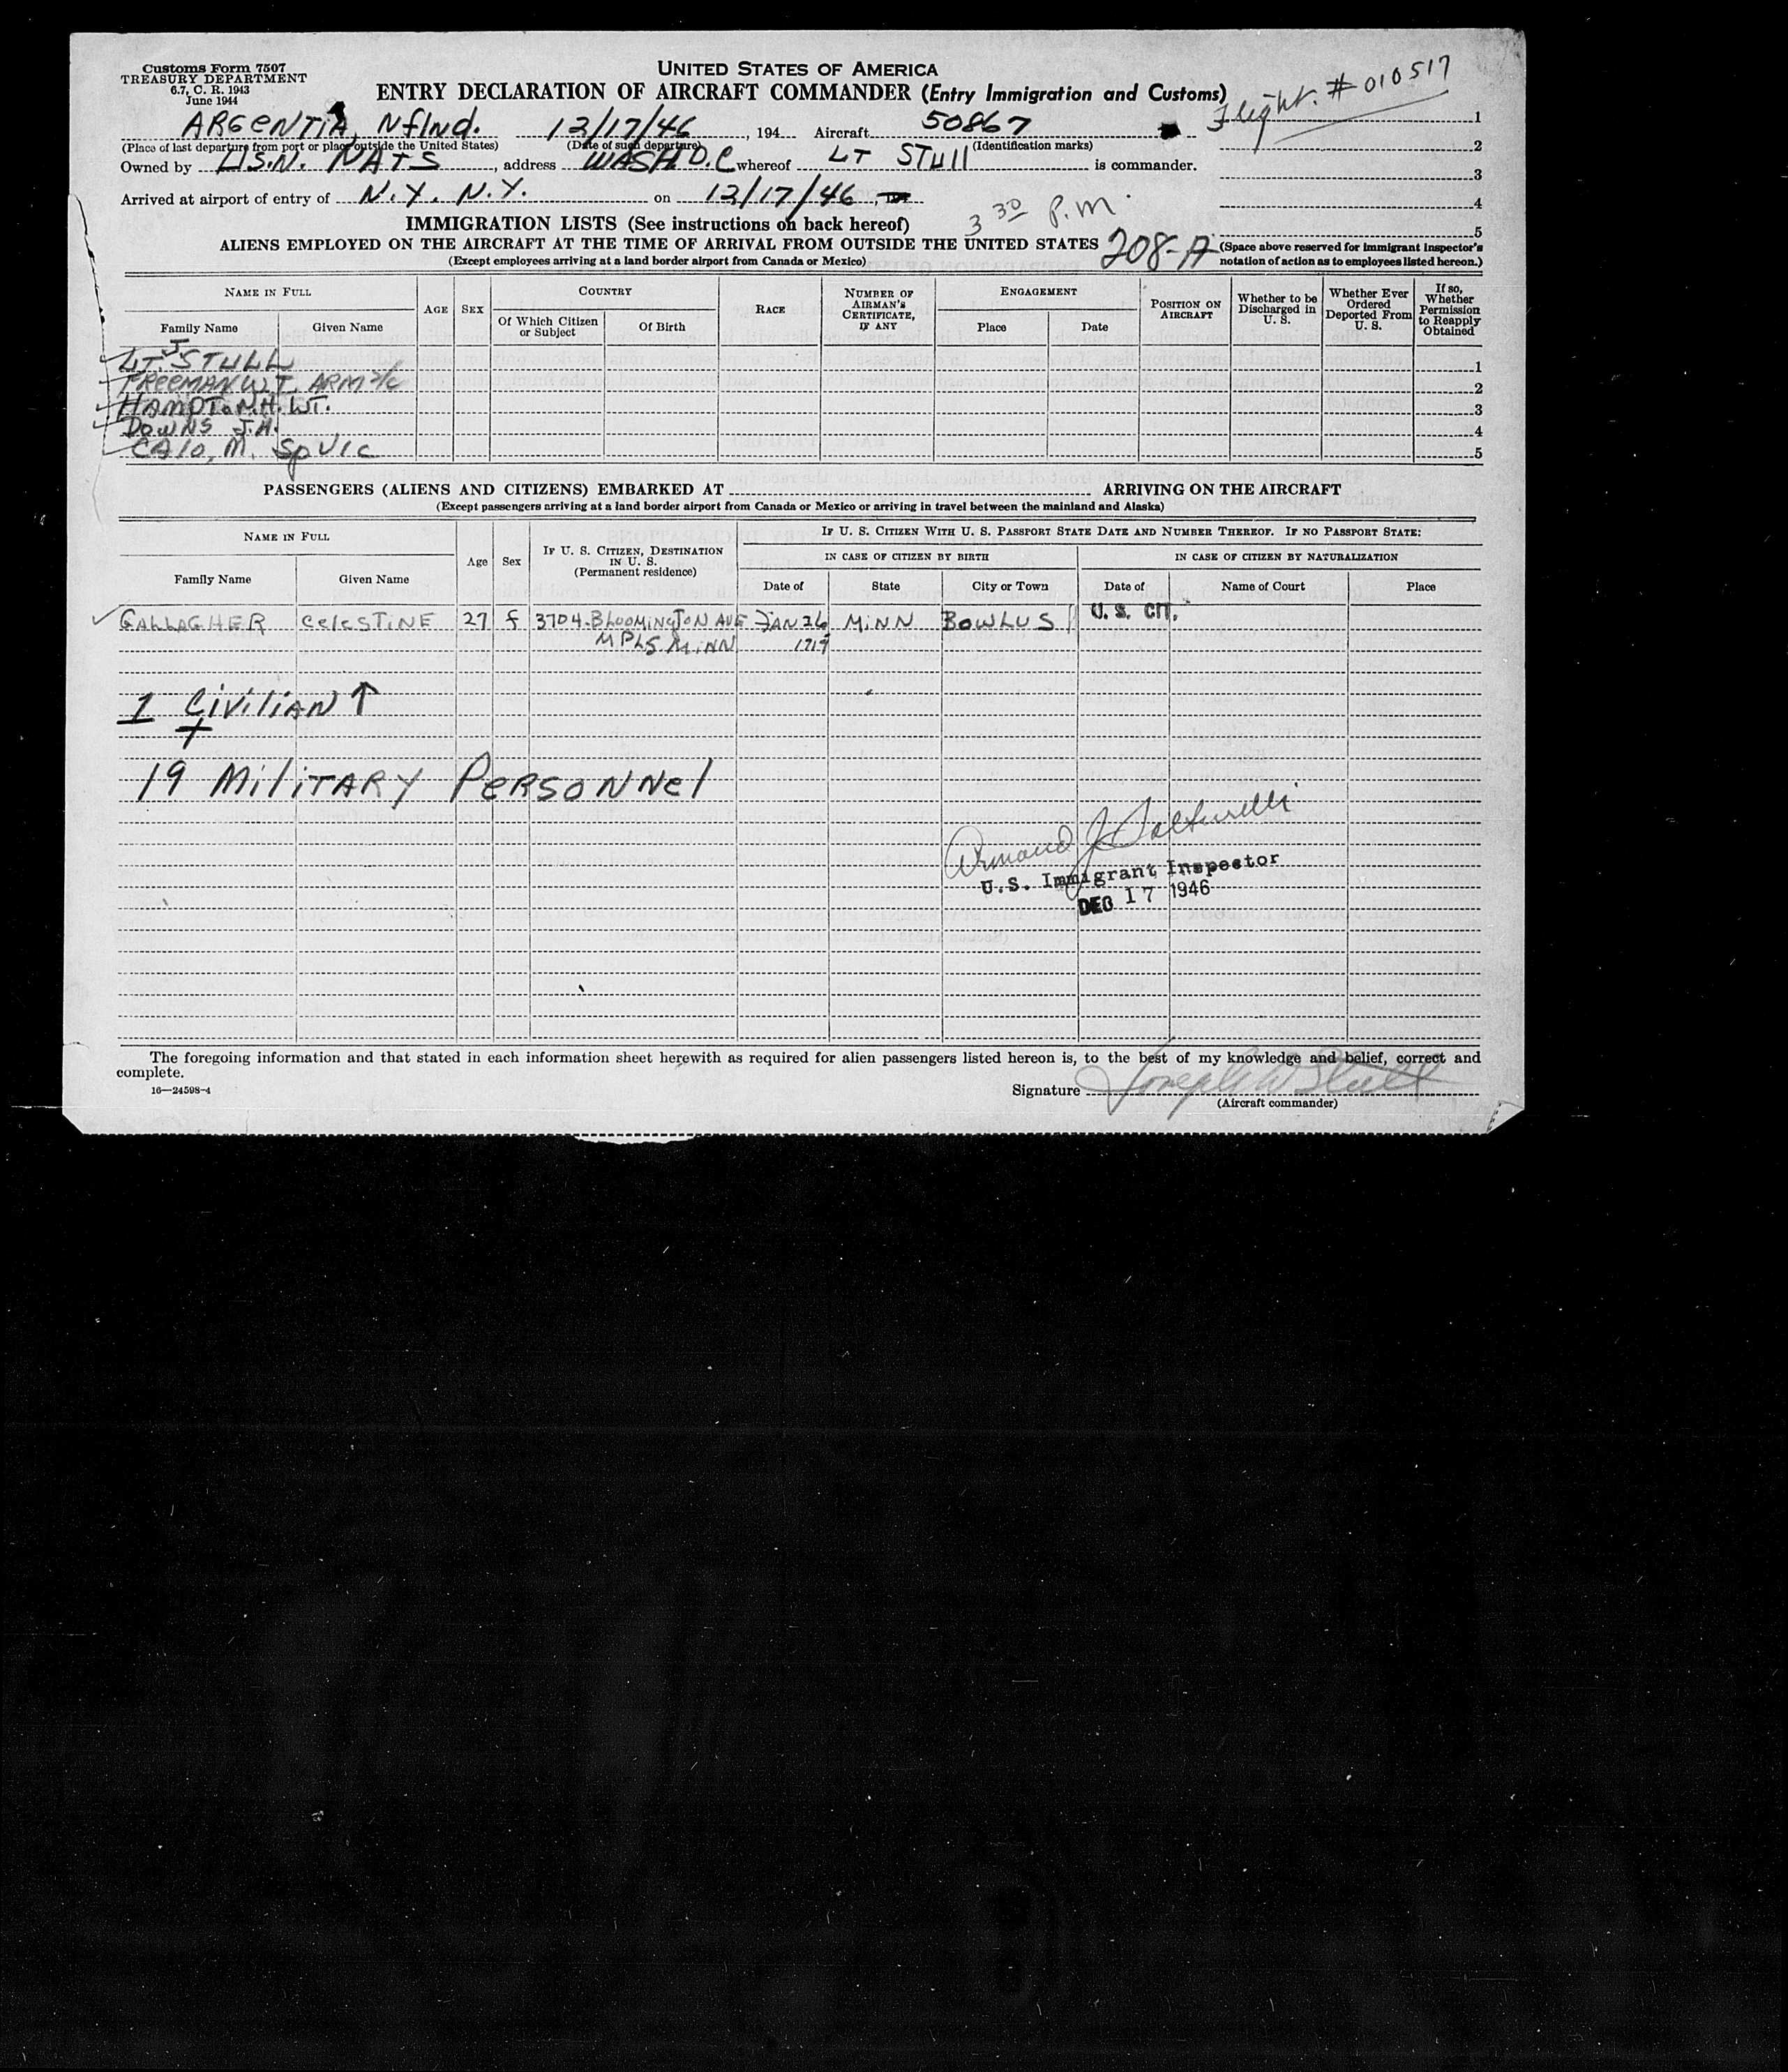 Customs Form 7507
TREASURY DEPARTMENT
6.7, C. R. 1943
June 1944
UNITED STATES OF AMERICA
ENTRY DECLARATION OF AIRCRAFT COMMANDER (Entry Immigration and Customs)
Flight. # 010517
ARGENTIA, Nflnd. 12/17/46, 194 Aircraft 50867
(Place of last departure from port or place outside the United States) (Date of such departure) (Identification marks)
Owned by U.S.N. NATS, address WASH D.C whereof LT STULL is commander.
Arrived at airport of entry of N.Y. N.Y. on 12/17/46,
3 30 P.M.
1
2
3
4
5
IMMIGRATION LISTS (See instructions on back hereof)
ALIENS EMPLOYED ON THE AIRCRAFT AT THE TIME OF ARRIVAL FROM OUTSIDE THE UNITED STATES
208-A
(Except employees arriving at a land border airport from Canada or Mexico)
(Space above reserved for Immigrant Inspector's
notation of action as to employees listed hereon.)
NAME IN FULL
Family Name Given Name
AGE SEX
COUNTRY
Of Which Citizen or Subject Of Birth
RACE
NUMBER OF AIRMAN'S CERTIFICATE, IF ANY
ENGAGEMENT
Place Date
POSITION ON AIRCRAFT
Whether to be Discharged in U. S.
Whether Ever Ordered Deported From U. S.
If so, Whether Permission to Reapply Obtained
LT. J STULL 1
FREEMAN W.T. ARM 2/c 2
HAMPTON.H. WT. 3
DOWNS J.H. 4
CALO, M. Sp V1c 5
PASSENGERS (ALIENS AND CITIZENS) EMBARKED AT ARRIVING ON THE AIRCRAFT
(Except passengers arriving at a land border airport from Canada or Mexico or arriving in travel between the mainland and Alaska)
NAME IN FULL
Family Name Given Name
Age Sex
IF U. S. CITIZEN, DESTINATION IN U. S. (Permanent residence)
IF U. S. CITIZEN WITH U. S. PASSPORT STATE DATE AND NUMBER THEREOF. IF NO PASSPORT STATE:
IN CASE OF CITIZEN BY BIRTH IN CASE OF CITIZEN BY NATURALIZATION
Date of State City or Town Date of Name of Court Place
GALLAGHER CELESTINE 27 f 3704 BLOOMINGTON AVE JAN 26 MINN BOWLUS U. S. CIT.
MPLS MINN 1919
1 Civilian ↑
+
19 MiliTARY PERSONNel
U.S. Immigrant Inspector
DEC 17 1946
The foregoing information and that stated in each information sheet herewith as required for alien passengers listed hereon is, to the best of my knowledge and belief, correct and
complete.
16—24598-4
Signature Joseph W Stull
(Aircraft commander)